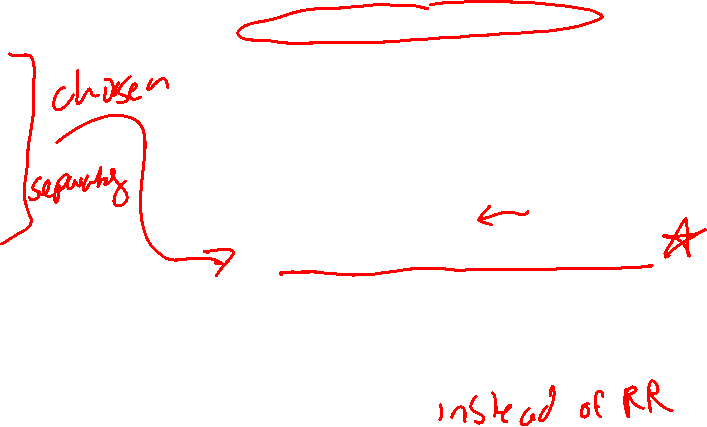 chosen
separately
instead of RR